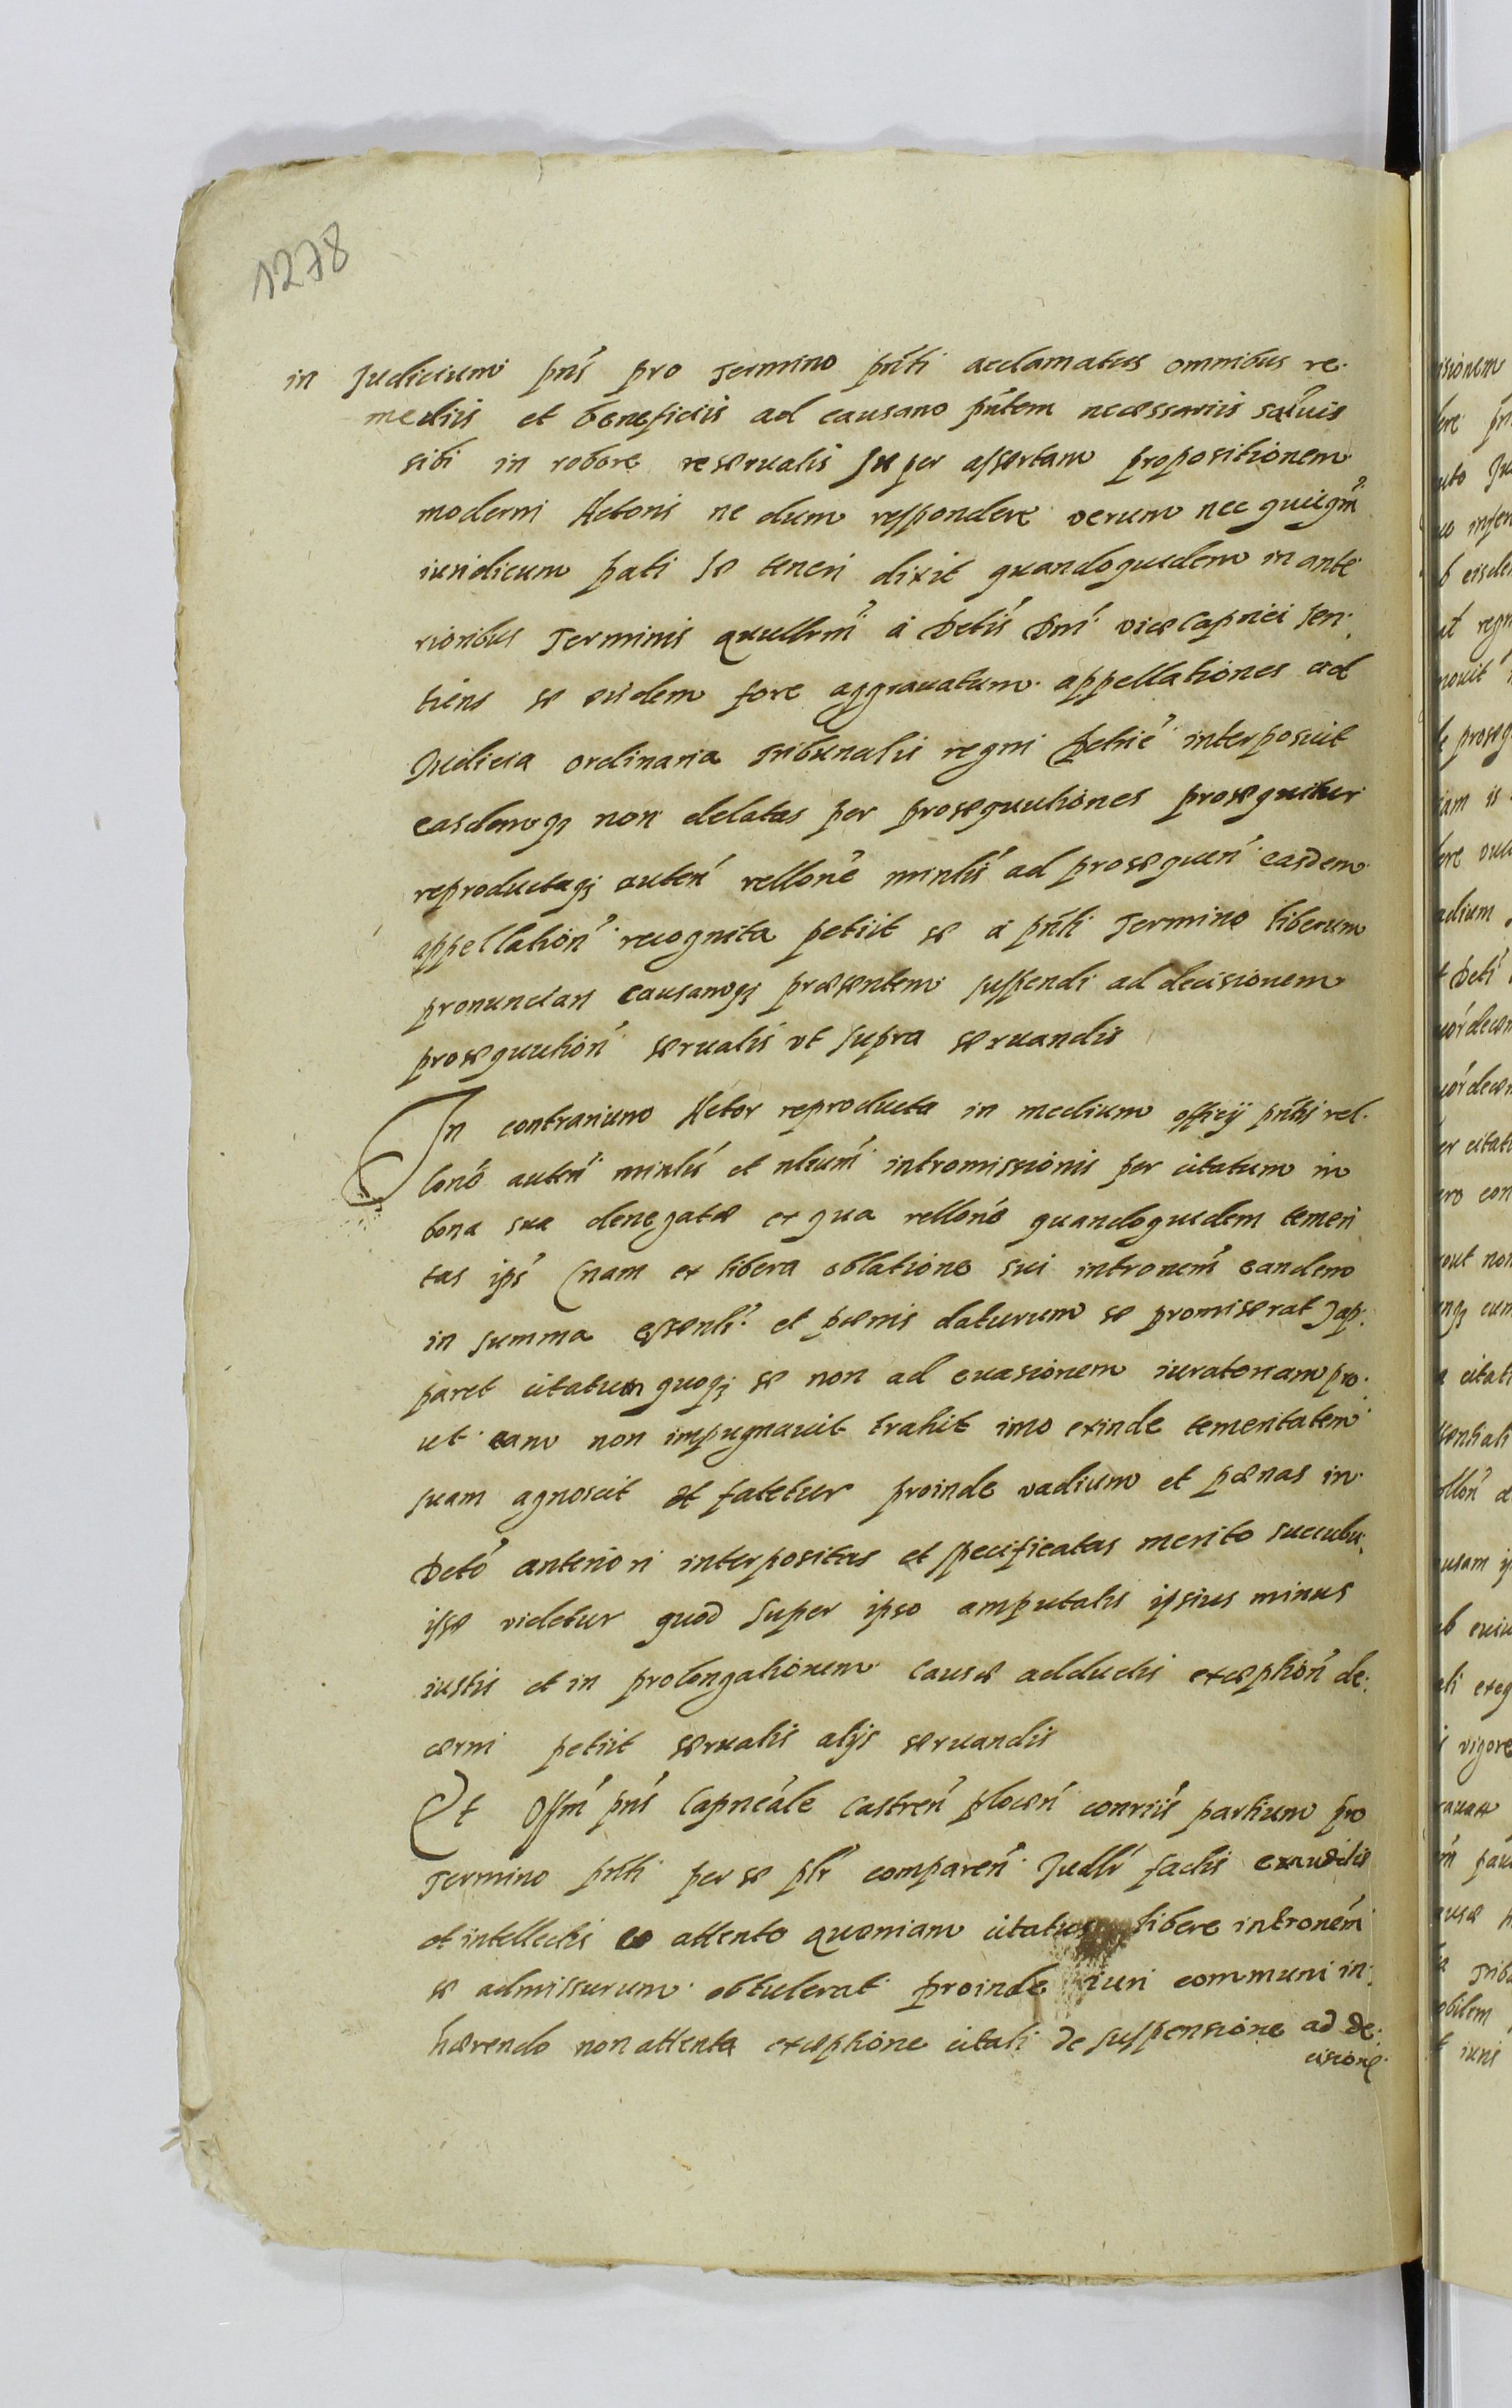 1278
in Judicium pñs pro Termino pñti acclamatus omnibus re-
medijs et beneficiis ad causam pñtem necessariis saluis
sibi in robore reseruatis super assertam propositionem
moderni Actoris ne dum respondere verum nec quicqm̃
iuridicum pati se teneri dixit quandoquidem in ante
rioribus Terminis à Dctis vicæCapnei sen-
tiens se eisdem fore aggrauatum appellationes ad
Judicia ordinaria Tribunalis regni interposuit
easdemq; non delatas per prosequutiones prosequitur
reproductaq; auten rellone minlis ad prosequen easdem
appellation recognita petiit se à pñti Termino liberum
pronunciari causamq; præsentem suspendi ad decisionem
prosequution seruatis vt supra seruandis
In contrarium Actor reproducta in medium officij pñtis rel-
lone auten minlis et intromissionis per citatum in
bona sua denegatæ ex qua rellone quandoquidem temeri
tas ips (nam ex libera oblatione sui intronem eandem
in summa et pœnis daturum se promiserat) ap-
paret citatum quoq; se non ad euasionem iuratoriam pro-
ut eam non impugnauit trahit imo exinde temeritatem
suam agnoscit et fatetur proinde vadium et pœnas in
Dcto anteriori interpositas et specificatas merito succubu-
isse videtur quod super ipso amputatis ipsius minus
iustis et in prolongationem causæ adductis exception de-
cerni petiit seruatis alijs seruandis
Et Offm pñs Capneale Castren plocen partium pro
Termino pñti per se comparen Judlr factis exauditis
et intellectis eo attento quoniam citatus libere intronem
se admissurum obtulerat proinde iuri communi in-
hærendo non attenta exceptione citati de suspensione ad de-
cisione